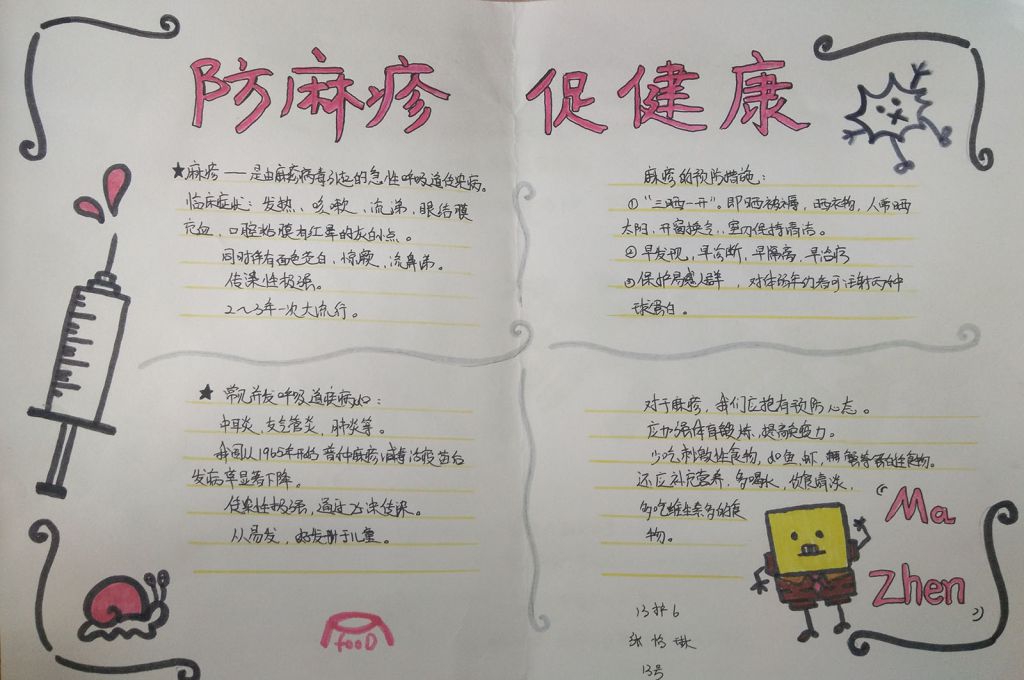 防麻疹 促健康
★麻疹——是由麻疹病毒引起的急性呼吸道传染病。
临床症状：发热、咳嗽、流涕、眼结膜
充血，口腔粘膜有红晕的灰白点。
同时伴有面色苍白，惊厥、流鼻涕。
传染性极强。
2～3年一次大流行。
★ 常见并发呼吸道疾病如：
中耳炎，支气管炎，肺炎等。
我国从1965年开始普种麻疹减毒活疫苗后
发病率显著下降。
传染性极强，通过飞沫传染。
从易发，好发群于儿童。
麻疹的预防措施：
①“三晒一开”。即晒被褥，晒衣物，人常晒
太阳，开窗换气，室内保持清洁。
②早发现，早诊断，早隔离，早治疗
③保护易感人群，对体弱年幼者可注射丙种
球蛋白。
对于麻疹，我们应抱有预防心态。
应加强体育锻炼，提高免疫力。
少吃刺激性食物，如鱼，虾，等的性食物。
还应补充营养，多喝水，饮食清淡，
多吃维生素多的食
物。
“Ma
Zhen”
fooD
13护6
张怡琳
13号